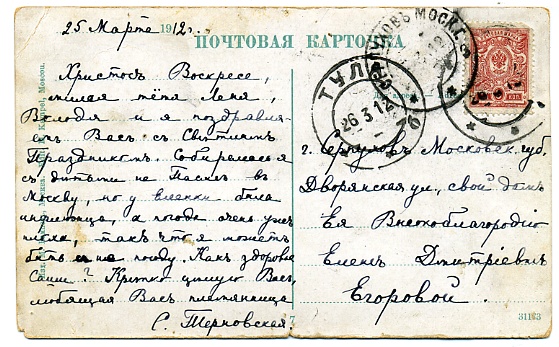 25 Марта 1912 г.
ПОЧТОВАЯ КАРТОЧКА
Христосъ Воскресе,
милая тётя Леня,
Володя и я поздравля-
емъ Васъ съ Свѣтлымъ
Праздникомъ. Собираемся
съ дѣтьми на Пасхѣ въ
Москву, но у была
инфлюэнца, а погода очень уже
плоха, такъ что я можетъ
быть и не поѣду. Какъ здоровье
Саши? Крѣпко цѣлую Васъ,
любящая Васъ племянница
С. Терновская.
ТУЛА
26.3.12
СЕРПУХОВЪ МОСК.
г. Серпуховъ Московск. губ.
Дворянская ул., свой домъ
Ея Высокоблагородію
Еленѣ Дмитріевнѣ
Егоровой.
31163